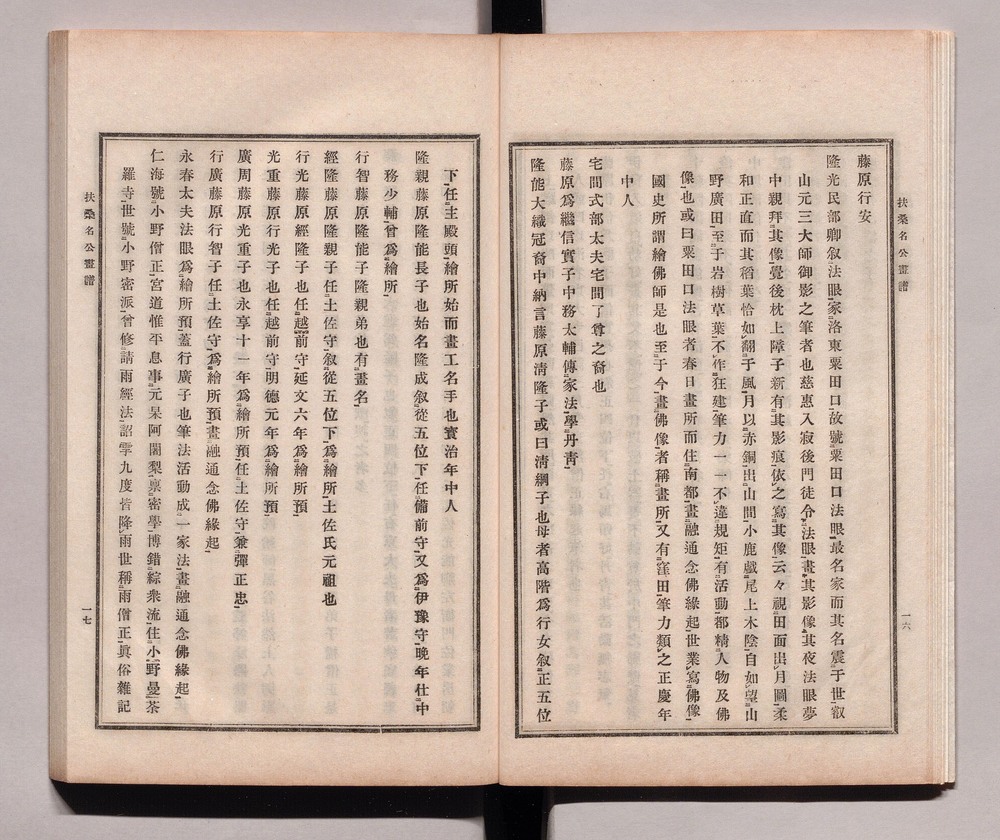 扶桑名公畫譜
一六
藤原行安
隆光民部卿叙法眼家洛東粟田口故號粟田口法眼最名家而其名震于世叡
山元三大師御影之筆者也慈惠入寂後門徒令法眼畫其影像其夜法眼夢
中親拜其像覺後枕上障子新有其影痕依之寫其像云々視田面出月圖柔
和正直而其稻葉恰如翻于風月以赤銅出山間小鹿戯尾上木陰自如望山
野廣田至于岩樹草葉不作狂建筆力一一不違規矩有活動都精人物及佛
像也或曰粟田口法眼者春日畫所而住南都畫融通念佛緣起世業寫佛像
國史所謂繪佛師是也至于今畫佛像者稱畫所又有窪田筆力類之正慶年
中人
宅間式部太夫宅間了尊之裔也
藤原爲繼信實子中務太輔傳家法學丹靑
隆能大織冠裔中納言藤原淸隆子或曰淸綱子也母者高階爲行女叙正五位
下任主殿頭繪所始而畫工名手也寳治年中人
隆親藤原隆能長子也始名隆成叙從五位下任備前守又爲伊豫守晚年仕中
務少輔曾爲繪所
行智藤原隆能子隆親弟也有畫名
經隆藤原隆親子任土佐守叙從五位下爲繪所土佐氏元祖也
行光藤原經隆子也任越前守延文六年爲繪所預
光重藤原行光子也任越前守明德元年爲繪所預
廣周藤原光重子也永享十一年爲繪所預任土佐守兼彈正忠
行廣藤原行智子任土佐守爲繪所預畫融通念佛緣起
永春太夫法眼爲繪所預蓋行廣子也筆法活動成一家法畫融通念佛緣起
仁海號小野僧正宮道惟平息事元杲阿闍梨稟密學博錯綜衆流住小野曼荼
羅寺世號小野密派曾修請雨經法詔雩九度皆降雨世稱雨僧正眞俗雜記
扶桑名公畫譜
一七